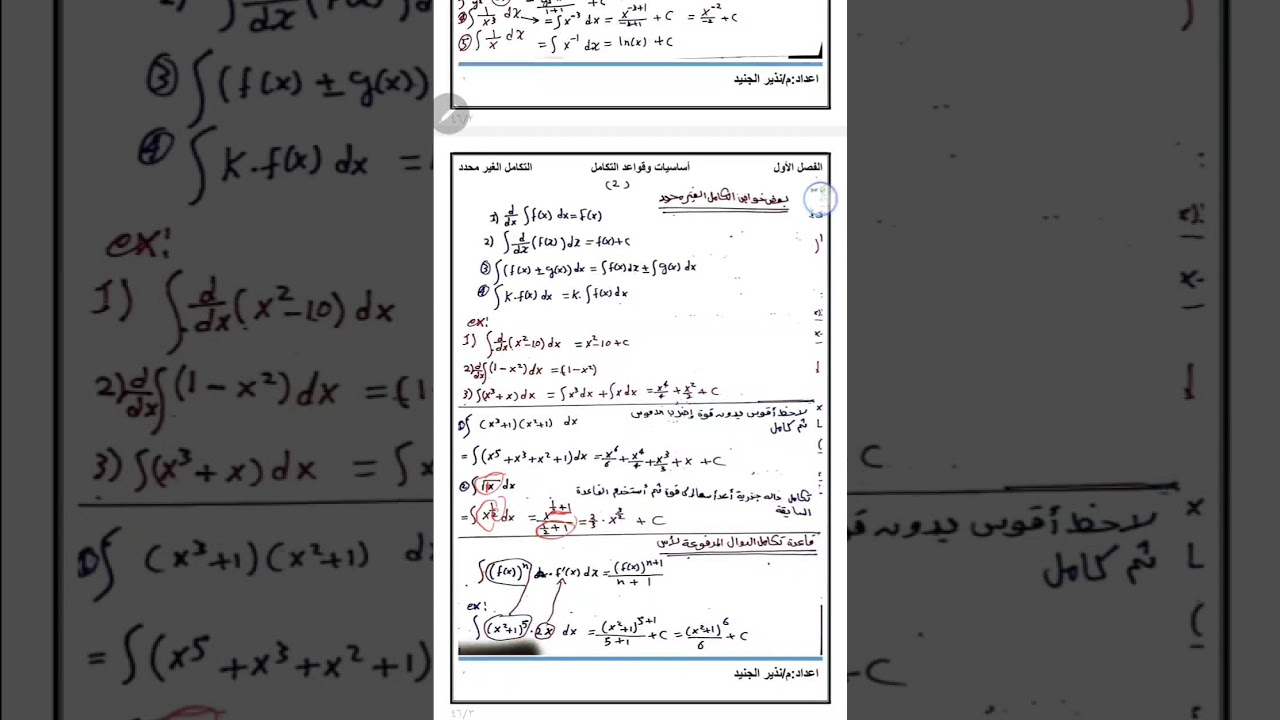 ④ ∫ 1/x³ dx → = ∫ x⁻³ dx = x⁻³⁺¹/-3+1 + C = x⁻²/-2 + C
⑤ ∫ 1/x dx = ∫ x⁻¹ dx = ln(x) + C
اعداد:م/نذير الجنيد
٤٦/٢
الفصل الأول أساسيات وقواعد التكامل التكامل الغير محدد
(2)
بعض خواص التكامل الغير محدود
1) d/dx ∫ f(x) dx = f(x)
2) ∫ d/dx (f(x)) dx = f(x)+C
③ ∫ (f(x) ± g(x)) dx = ∫ f(x) dx ± ∫ g(x) dx
④ ∫ K.f(x) dx = K.∫ f(x) dx
ex:
1) ∫ d/dx (x²-10) dx = x²-10+C
2) d/dx ∫ (1-x²) dx = (1-x²)
3) ∫ (x³+x) dx = ∫ x³ dx + ∫ x dx = x⁴/4 + x²/2 + C
① ∫ (x³+1)(x²+1) dx لاحظ أقوس بدون قوة
ثم كامل
= ∫ (x⁵+x³+x²+1) dx = x⁶/6 + x⁴/4 + x³/3 + x + C
② ∫ √x dx
تكامل داله جذرية ثم أستخدم القاعدة
السابقة
= ∫ x^½ dx = x^(½+1)/(½+1) = 2/3 . x^(3/2) + C
قاعدة تكامل الدوال المرفوعة لأس
∫ (f(x))ⁿ . f'(x) dx = (f(x))ⁿ⁺¹/n+1
ex:
∫ (x²+1)⁵ . 2x dx = (x²+1)⁵⁺¹/5+1 + C = (x²+1)⁶/6 + C
اعداد:م/نذير الجنيد
٤٦/٣